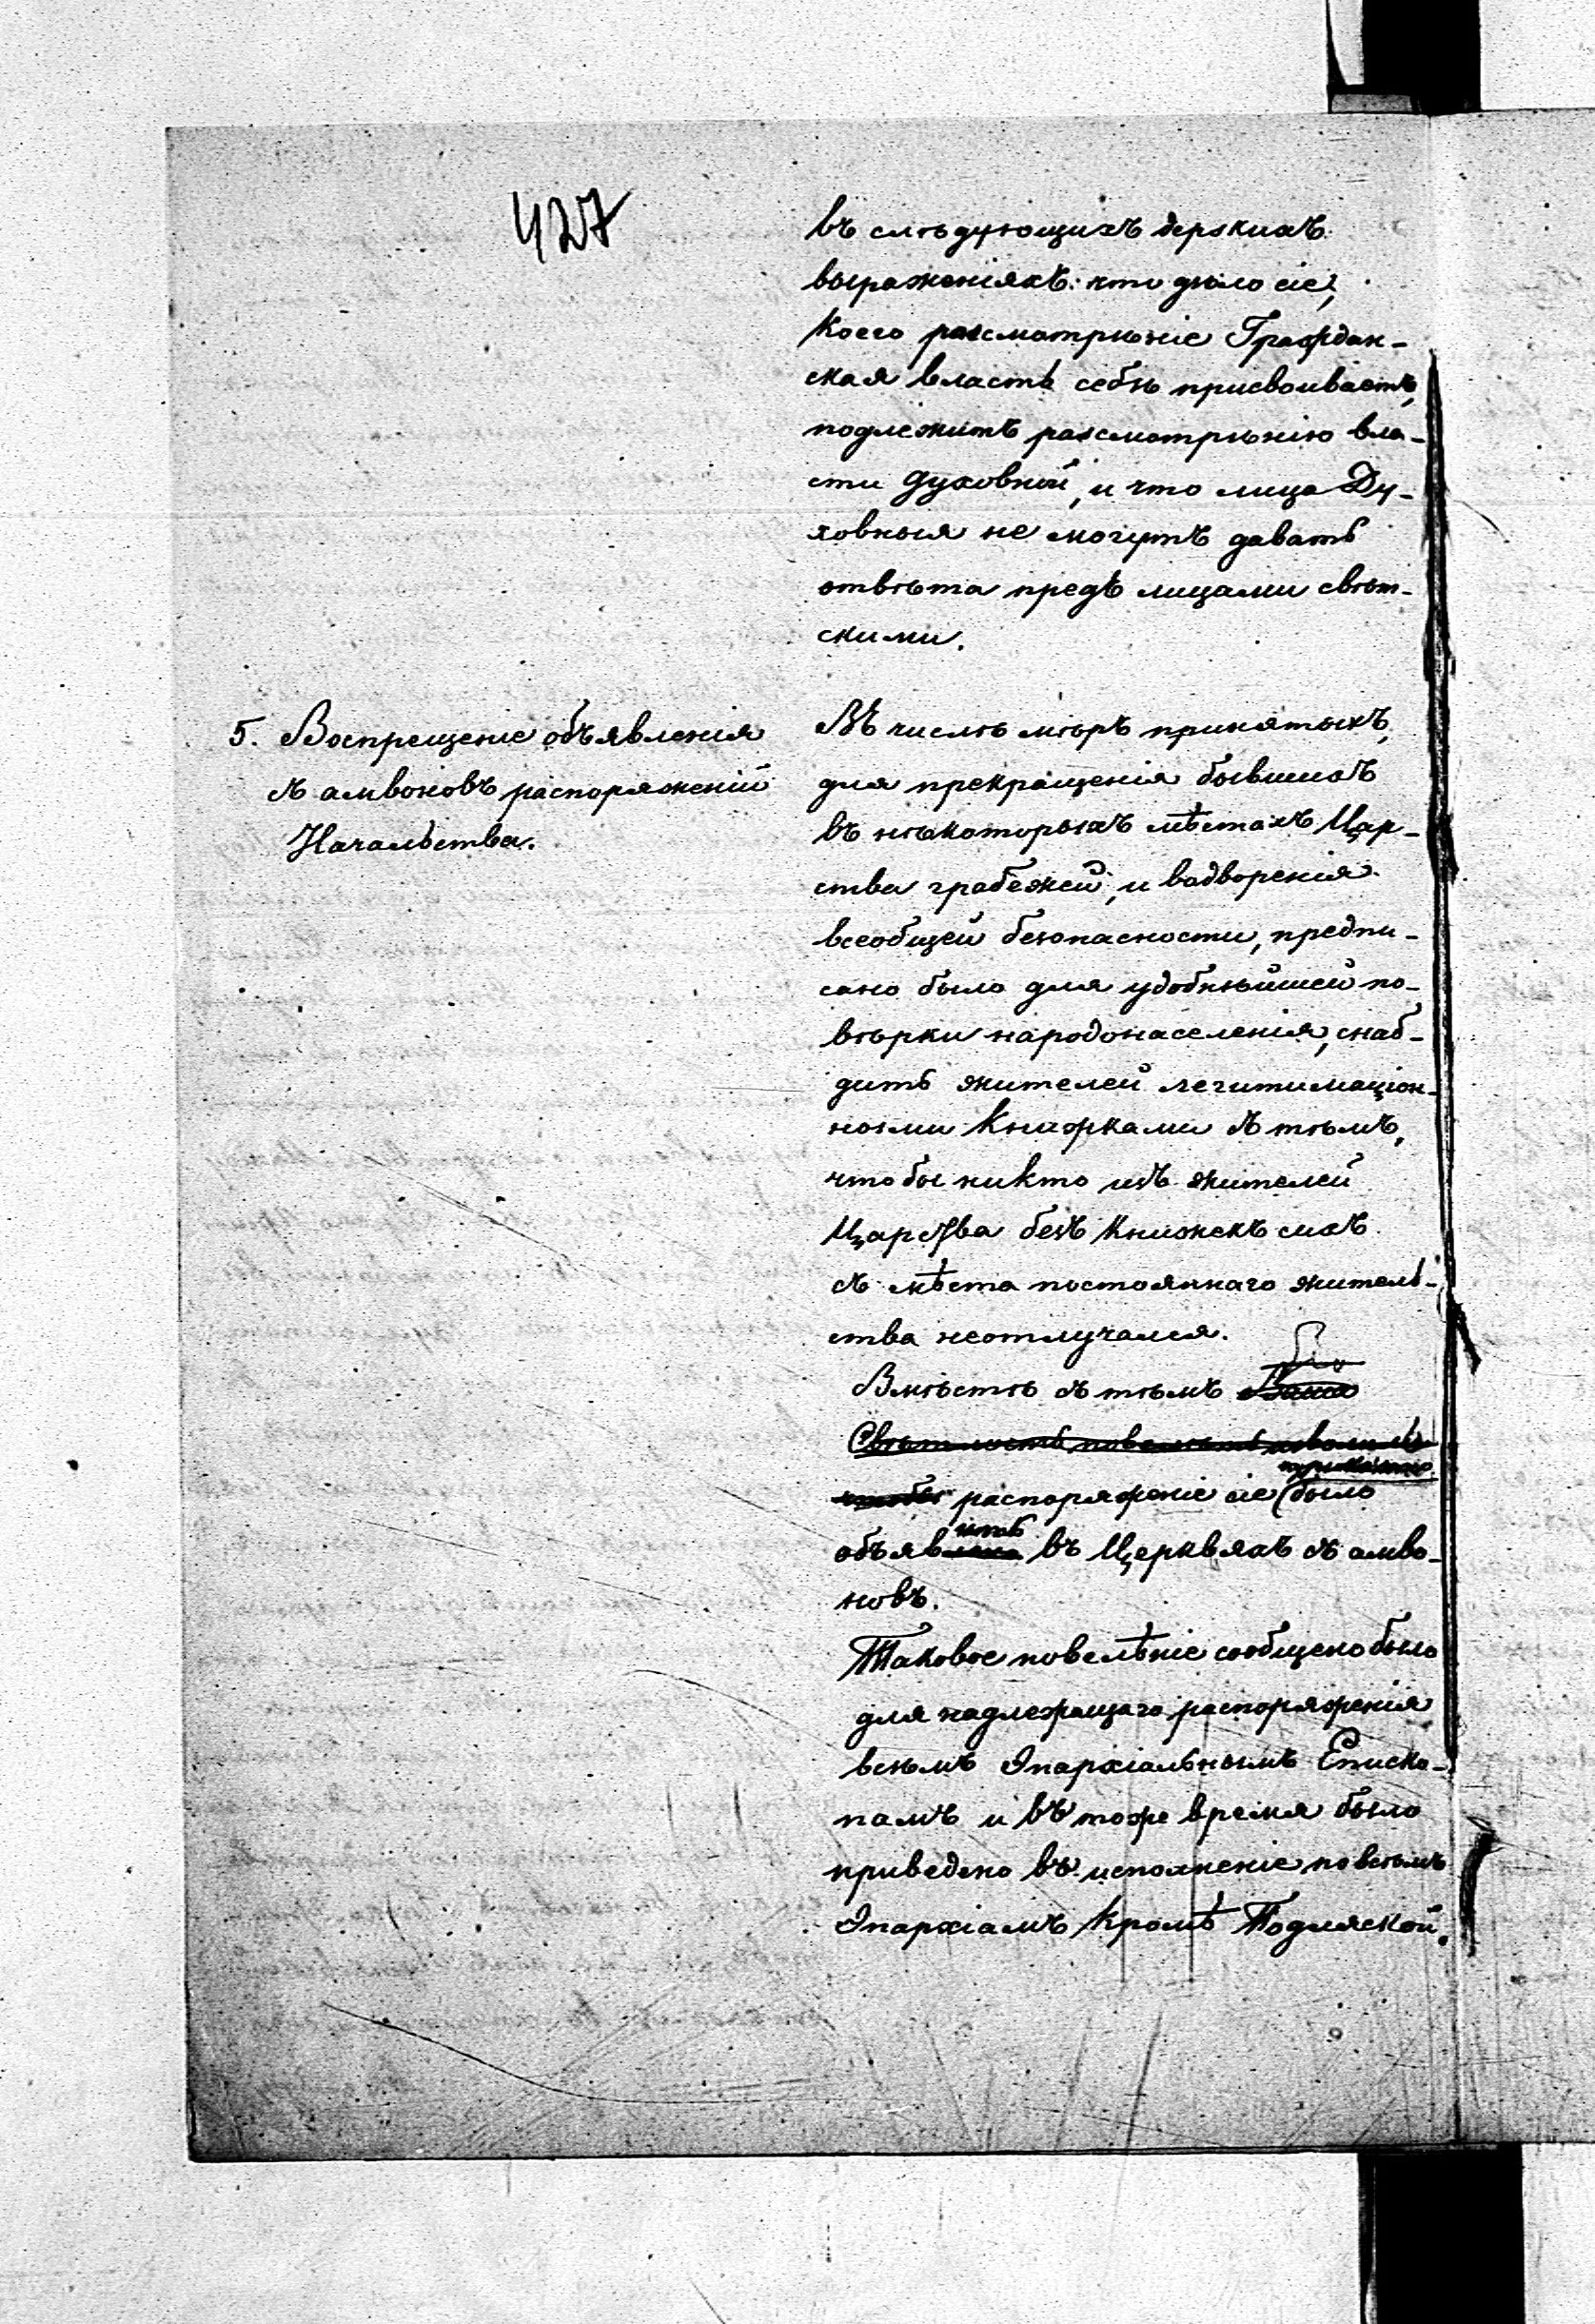 427
въ слѣдующихъ дерзкихъ
выраженіяхъ: что дѣло сіе,
коего разсмотрѣніе Граждан-
ская власть себѣ присвоиваетъ,
подлежитъ разсмотрѣнію вла-
сти духовной, и что лица Ду-
ховныя не могутъ давать
отвѣта предъ лицами свѣт-
скими.
5. Воспрещеніе объявленія
съ амвоновъ распоряженій
Начальства.
Въ числѣ мѣръ принятыхъ,
для прекращенія бывшихъ
въ нѣкоторыхъ мѣстахъ Цар-
ства грабежей, и водворенія
всеобщей безопасности, предпи-
сано было для удобнѣйшей по-
вѣрки народонаселенія, снаб-
дить жителей легитимаціон-
ными книжками съ тѣмъ,
чтобы никто изъ жителей
Царства безъ книжекъ сихъ
съ мѣста постояннаго житель-
ства неотлучался.
Вмѣстѣ съ тѣмъ Ваша
Свѣтлость повелѣть изволили
приказано
чтобы распоряженіе сіе было
ить
объявлено въ Церквяхъ съ амво-
новъ.
Таковое повелѣніе сообщено было
для надлежащаго распоряженія
всѣмъ Эпархіальнымъ Еписко-
памъ и въ тоже время было
приведено въ исполненіе по всѣмъ
Эпархіамъ кромѣ Подляской.